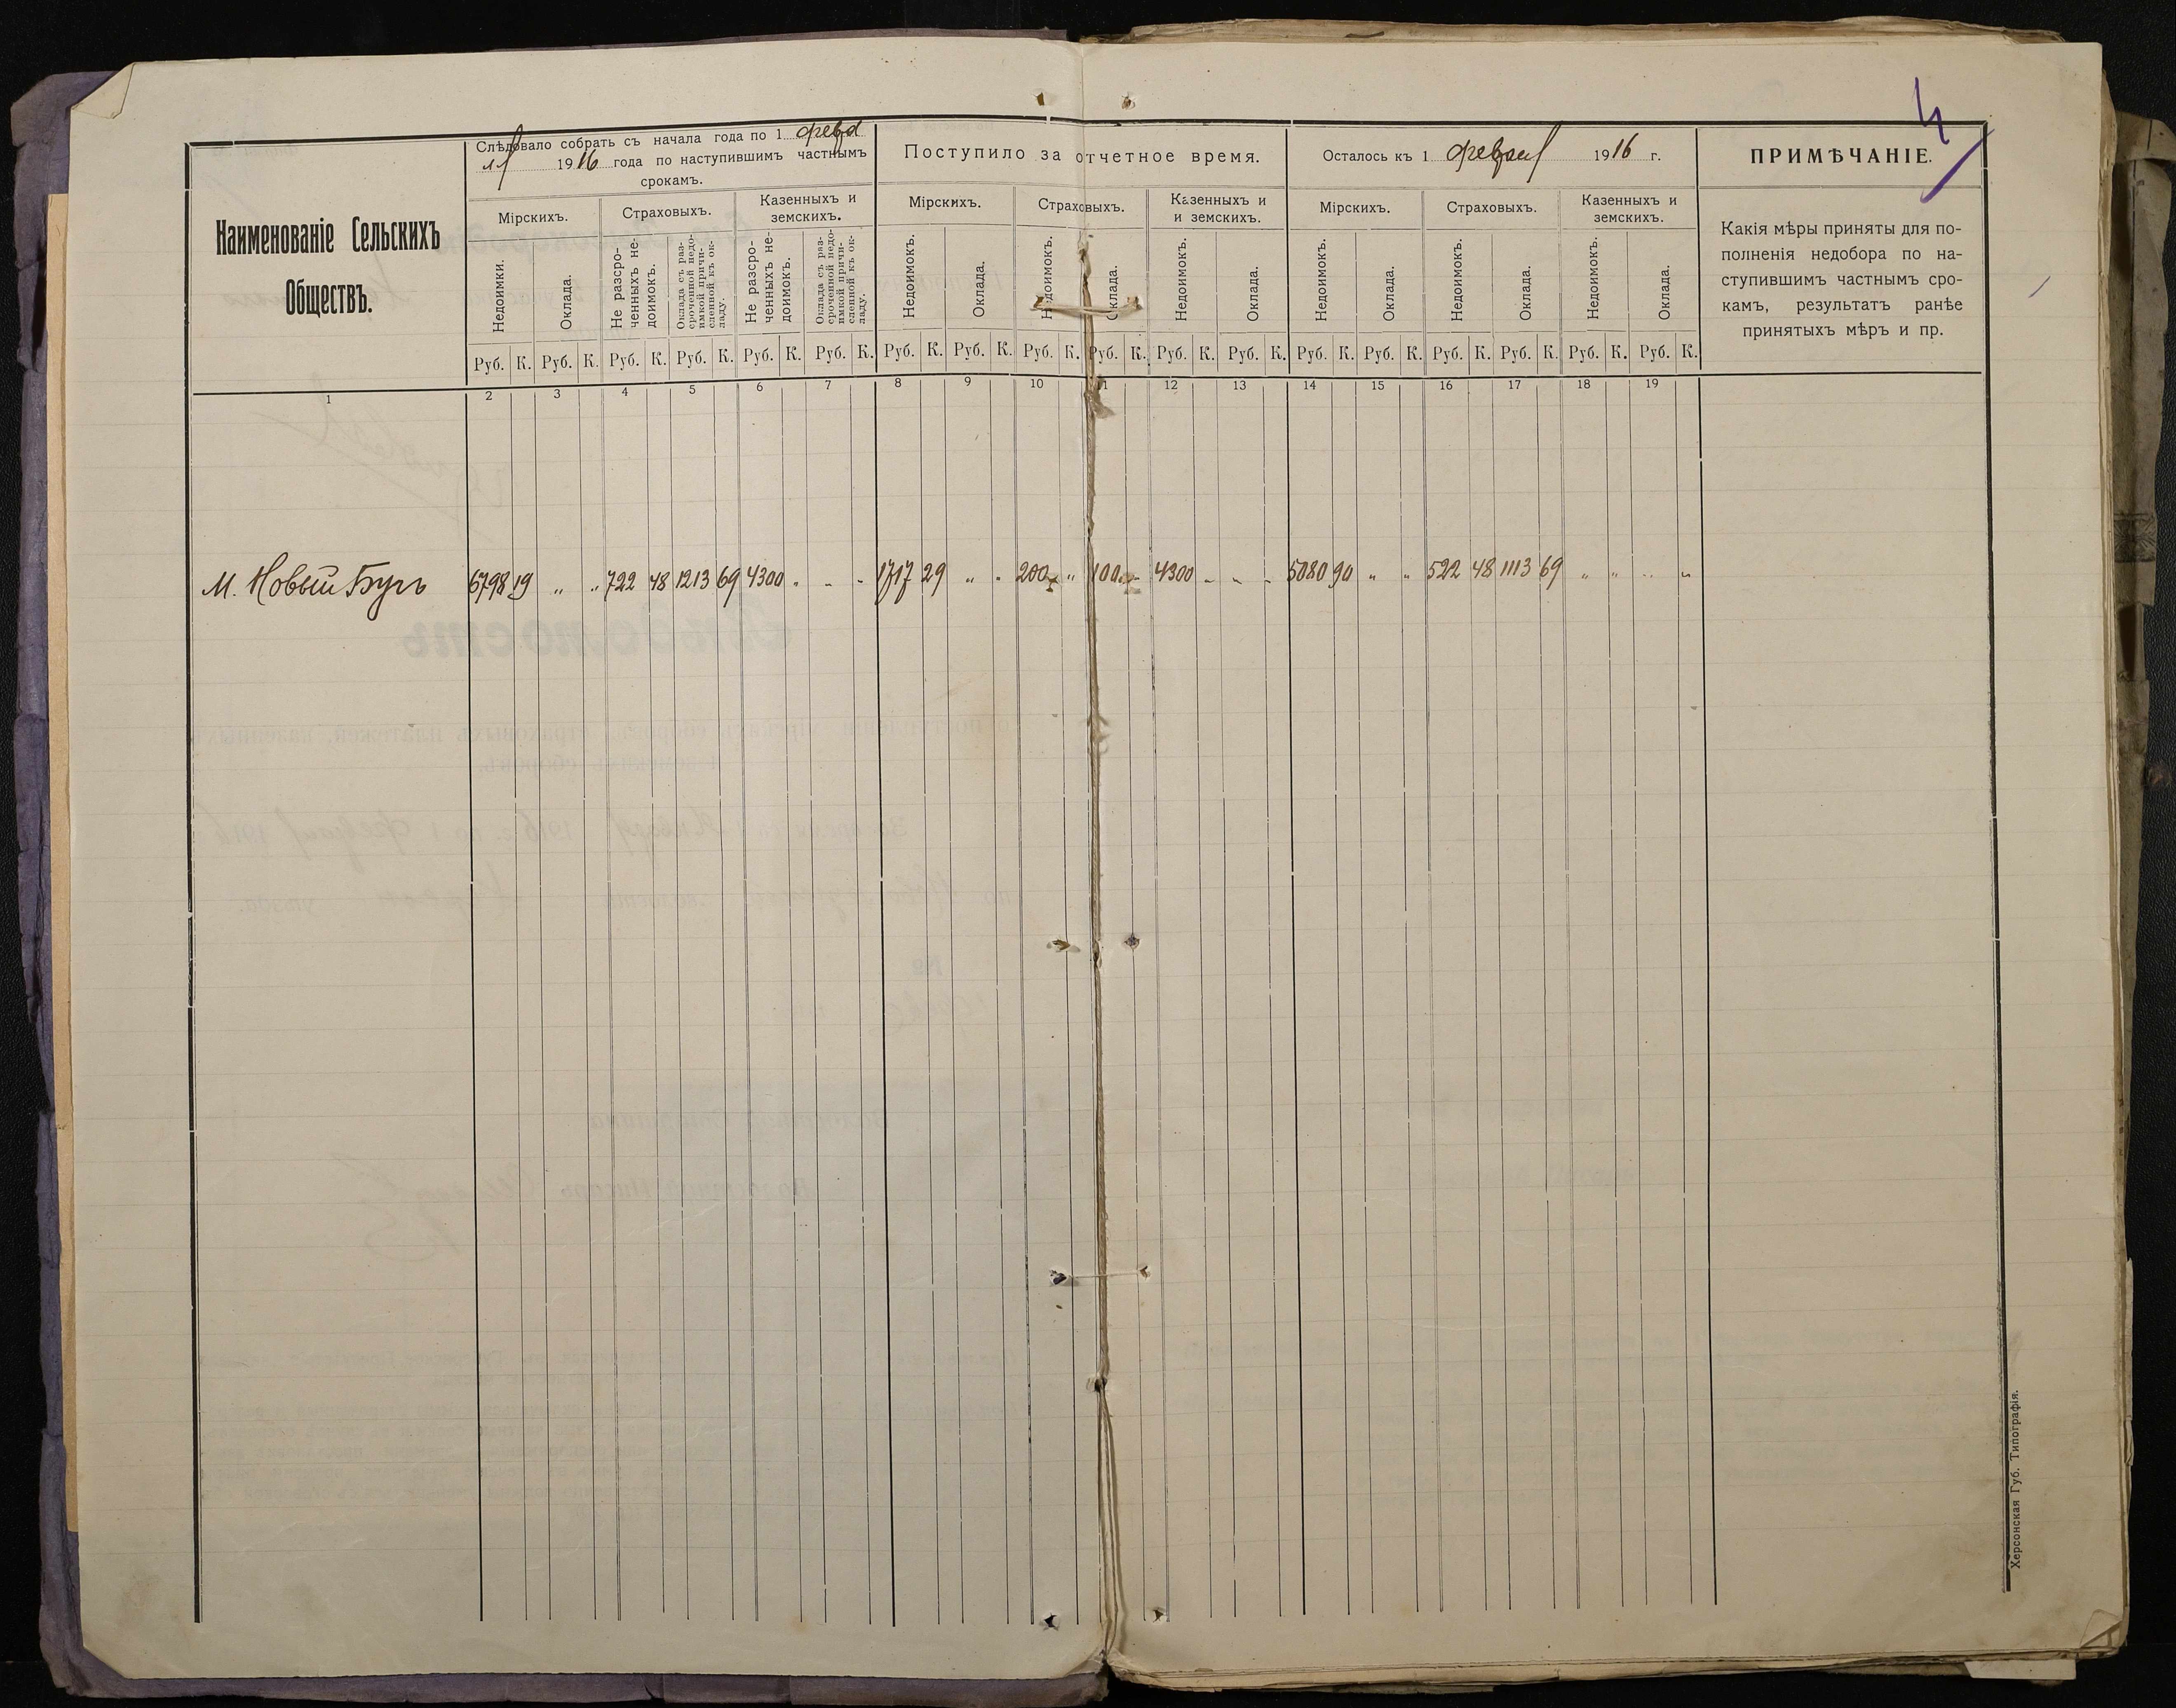 4
Наименованіе Сельскихъ
Обществъ.
Слѣдовало собрать съ начала года по 1 февра
ля 1916 года по наступившимъ частнымъ
срокамъ.
Поступило за отчетное время.
Осталось къ 1 февраля 1916 г.
ПРИМѢЧАНІЕ.
Мірскихъ. Страховыхъ. Казенныхъ и
земскихъ.
Мірскихъ. Страховыхъ. Казенныхъ и
и земскихъ.
Мірскихъ. Страховыхъ. Казенныхъ и
земскихъ.
Недоимки.
Оклада.
Не разсро-
ченныхъ не-
доимокъ.
Оклада съ раз-
сроченной недо-
имкой причи-
сленной къ ок-
ладу.
Не разсро-
ченныхъ не-
доимокъ.
Оклада съ раз-
сроченной недо-
имкой причи-
сленной къ ок-
ладу.
Недоимокъ.
Оклада.
Недоимокъ.
Оклада.
Недоимокъ.
Оклада.
Недоимокъ.
Оклада.
Недоимокъ.
Оклада.
Недоимокъ.
Оклада.
Какія мѣры приняты для по-
полненія недобора по на-
ступившимъ частнымъ сро-
камъ, результатъ ранѣе
принятыхъ мѣръ и пр.
Руб. К. Руб. К. Руб. К. Руб. К. Руб. К. Руб. К. Руб. К. Руб. К. Руб. К. Руб. К. Руб. К. Руб. К. Руб. К. Руб. К. Руб. К. Руб. К. Руб. К. Руб. К.
1 2 3 4 5 6 7 8 9 10 11 12 13 14 15 16 17 18 19
М. Новый Бугъ 6798 19 „ „ 722 48 1213 69 4300 - - - 1717 29 „ „ 200 „ 100 - 4300 - - - 5080 90 „ „ 522 48 1113 69 „ „ „ „
Херсонская Губ. Типографія.